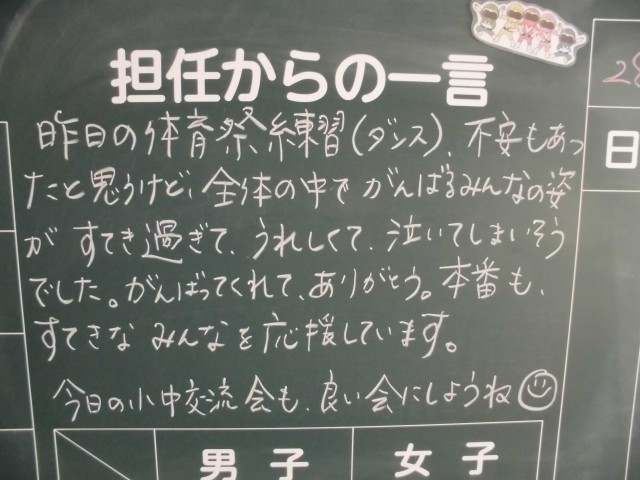 担任からの一言
28
日
昨日の体育祭練習(ダンス)、不安もあっ
たと思うけど、全体の中でがんばるみんなの姿
がすてき過ぎて、うれしくて、泣いてしまいそう
でした。がんばってくれて、ありがとう。本番も、
すてきなみんなを応援しています。
今日の小中交流会も、良い会にしようね
男子
女子